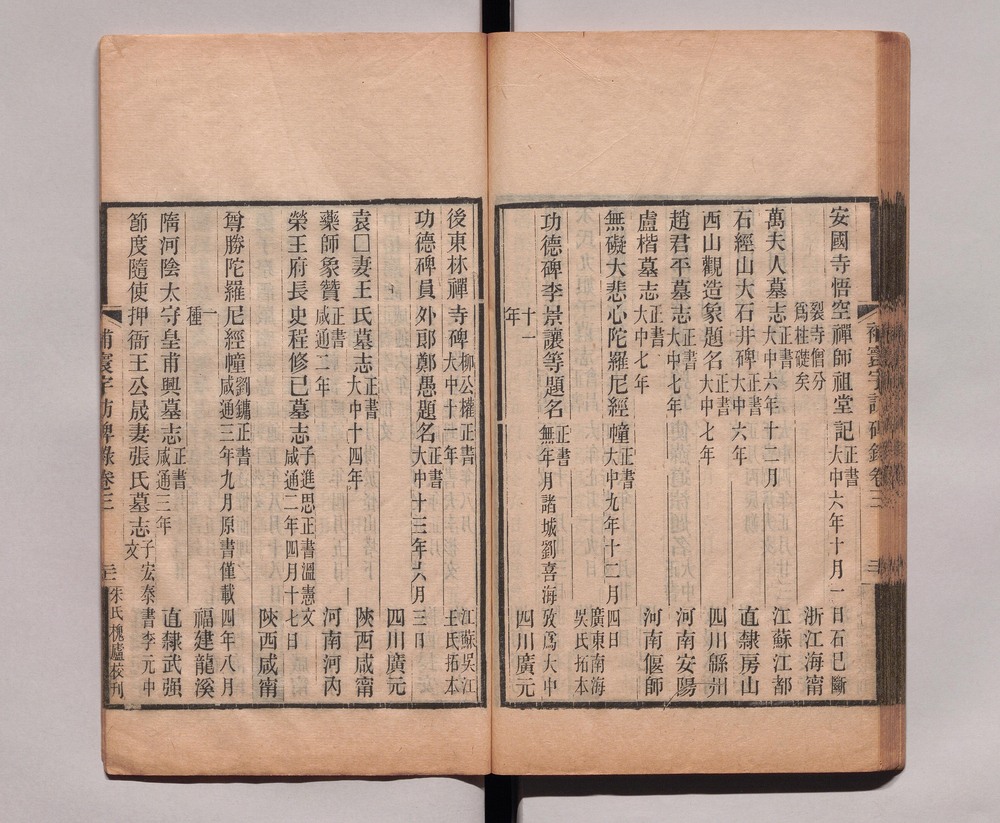 安國寺悟空禪師祖堂記正書大中六年十月一日石已斷
裂寺僧分爲柱礎矣 浙江海甯
萬夫人墓志正書大中六年十二月 江蘇江都
石經山大石井碑正書大中六年 直隸房山
西山觀造象題名正書大中七年 四川緜州
趙君平墓志正書大中七年 河南安陽
盧楷墓志正書大中七年 河南偃師
無礙大悲心陀羅尼經幢正書大中九年十二月四日 廣東南海吳氏拓本
功德碑李景讓等題名正書無年月諸城劉喜海攷爲大中
十一年 四川廣元
後東林禪寺碑柳公權正書大中十一年 江蘇吳江王氏拓本
功德碑員外郎鄭愚題名正書大中十三年六月三日
四川廣元
袁□妻王氏墓志正書大中十四年 陝西咸甯
藥師象贊正書咸通二年 河南河內
榮王府長史程修已墓志子進思正書溫憲文咸通二年四月十七日
陝西咸甯
尊勝陀羅尼經幢劉鏞正書咸通三年九月原書僅載四年八月
一種 福建龍溪
隋河陰太守皇甫興墓志正書咸通三年 直隸武强
節度隨使押衙王公晟妻張氏墓志子宏泰書李元中文
補寰宇訪碑錄卷三 三 朱氏槐廬校刊